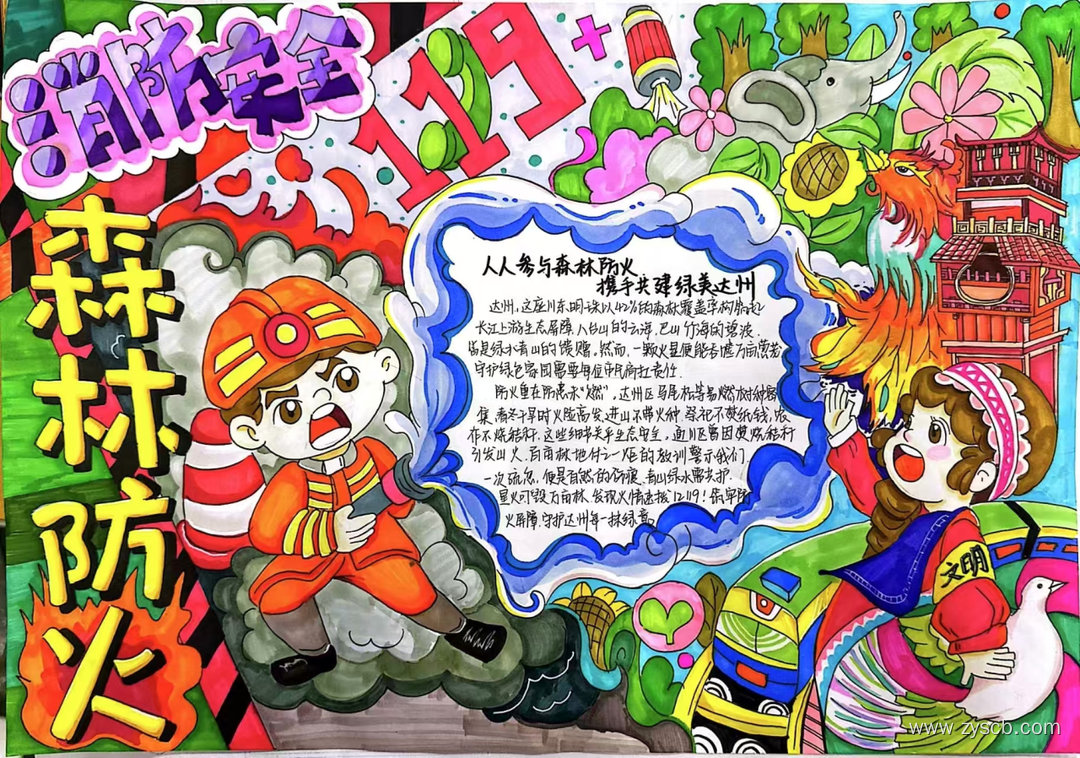 消防安全
119
森林防火
人人参与森林防火
携手共建绿美达州
达州,这座川东明珠以42%的森林覆盖率构筑起
长江上游生态屏障,八台山的云海,巴山竹海的碧波
皆是绿水青山的馈赠。然而,一颗火星便能吞噬万亩葱茏
守护绿色家园需要每位市民肩扛责任.
防火重在防患于"燃",达州区
集,春冬干旱时火险高发,进山不带火种,祭祀不焚纸钱,农
作不烧秸秆.这些细节关乎生态安全,通川区曾因焚烧秸秆
引发山火,百亩林地付之一炬的教训警示我们
一次疏忽,便是自然的伤痕,青山绿水需共护.
星火可毁万亩林,发现火情速拨12119!
火屏障,守护达州每一抹绿意。
文明
www.zyscb.com